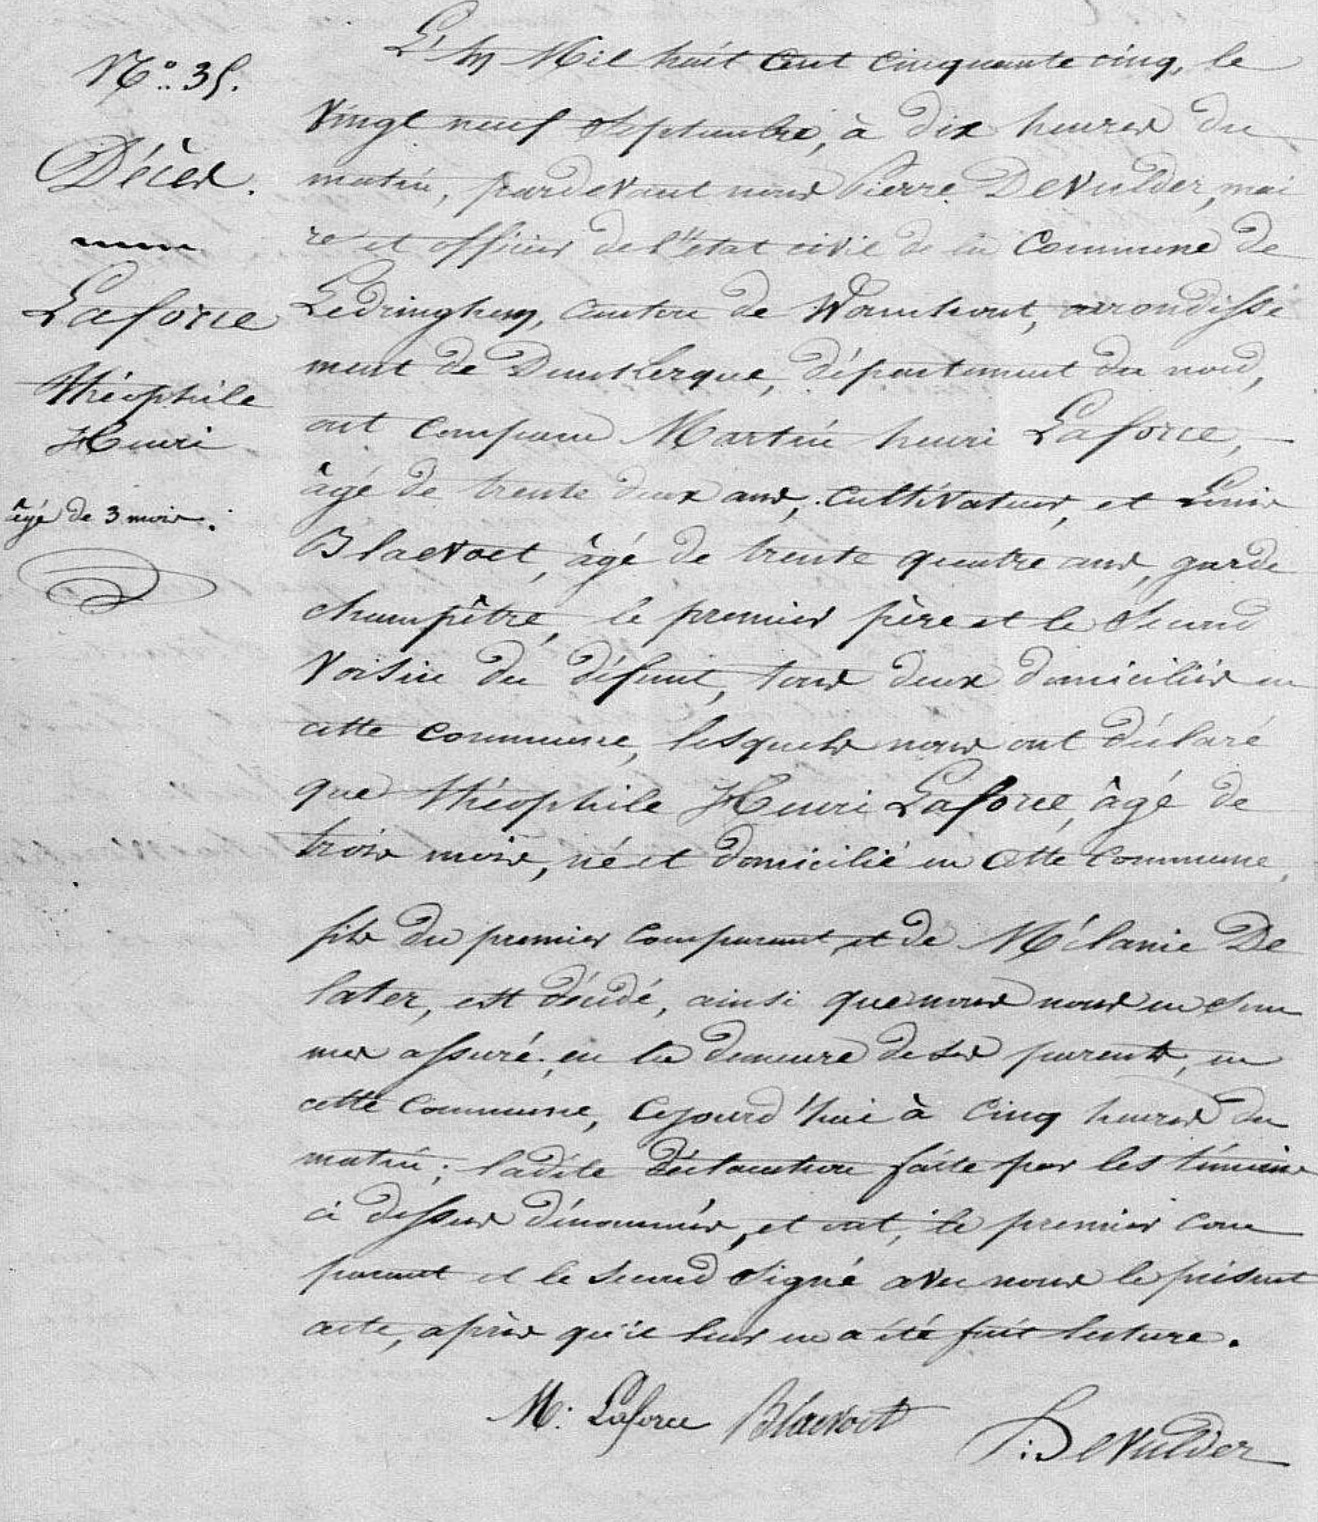 N° 35.
Décès.
Laforce
théophile
Henri
âgé de 3 mois.
L'an Mil huit Cent Cinquante cinq, le
vingt neuf Septembre, à dix heures du
matin, pardevant nous Pierre DeVulder, mai
re et officier de l'état civil de la Commune de
Ledringhem, Canton de Wormhout, arrondisse
ment de Dunkerque, département du nord,
ont comparu Martin henri Laforce,
âgé de trente deux ans, Cultivateur, et Louis
Blaevoet, âgé de trente quatre ans, garde
champêtre, le premier père et le Second
Voisin du défunt, tous deux domiciliés en
cette commune, lesquels nous ont déclaré
que théophile Henri Laforce, âgé de
trois mois, né et domicilié en cette Commune,
fils du premier Comparant et de Mélanie De
later, est décédé, ainsi que nous nous en Som
mes assuré, en la demeure de ses parents, en
cette Commune, Cejourd'hui à Cinq heures du
matin; ladite déclaration faite par les témoins
ci dessus dénommés, et ont, le premier com
parant et le Second Signé avec nous le présent
acte, après qu'il leur en a été fait lecture.
M. Laforce Blaevoet
P: DeVulder